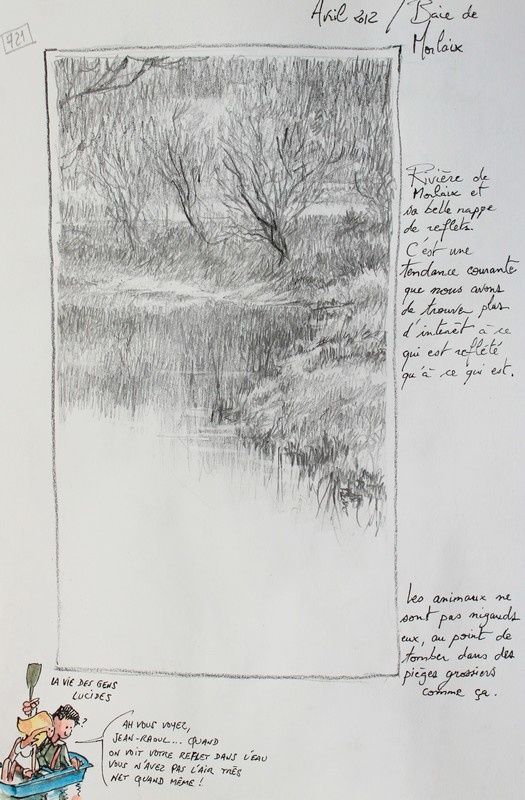 921
Avril 2012 / Baie de
Morlaix
Rivière de
Morlaix et
sa belle nappe
de reflets.
C'est une
tendance courante
que nous avons
de trouver plus
d'intérêt à ce
qui est reflété
qu'à ce qui est.
Les animaux ne
sont pas nigauds
eux, au point de
tomber dans des
pièges grossiers
comme ça.
LA VIE DES GENS
LUCIDES
?
AH VOUS VOYEZ,
JEAN-RAOUL... QUAND
ON VOIT VOTRE REFLET DANS L'EAU
VOUS N'AVEZ PAS L'AIR TRÈS
NET QUAND MÊME !